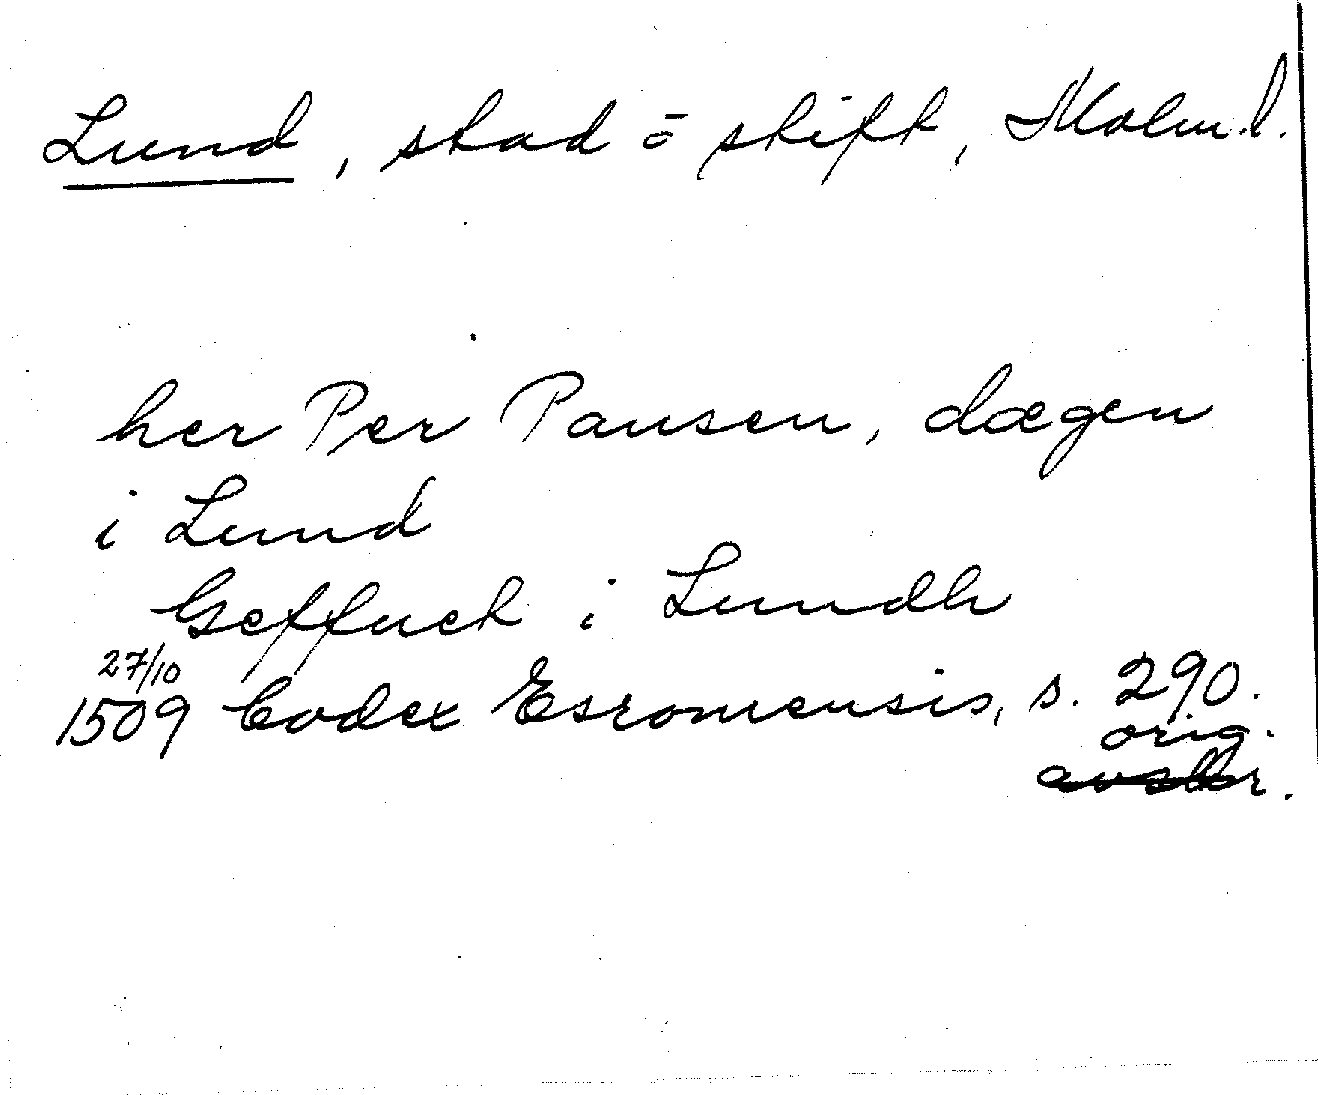 Lund, stad o stift, Malm.l.
her Per Pausen, dægen
i Lund
Geffuet i Lundh
27/10
1509 Codex Esromensis, s. 290.
orig.